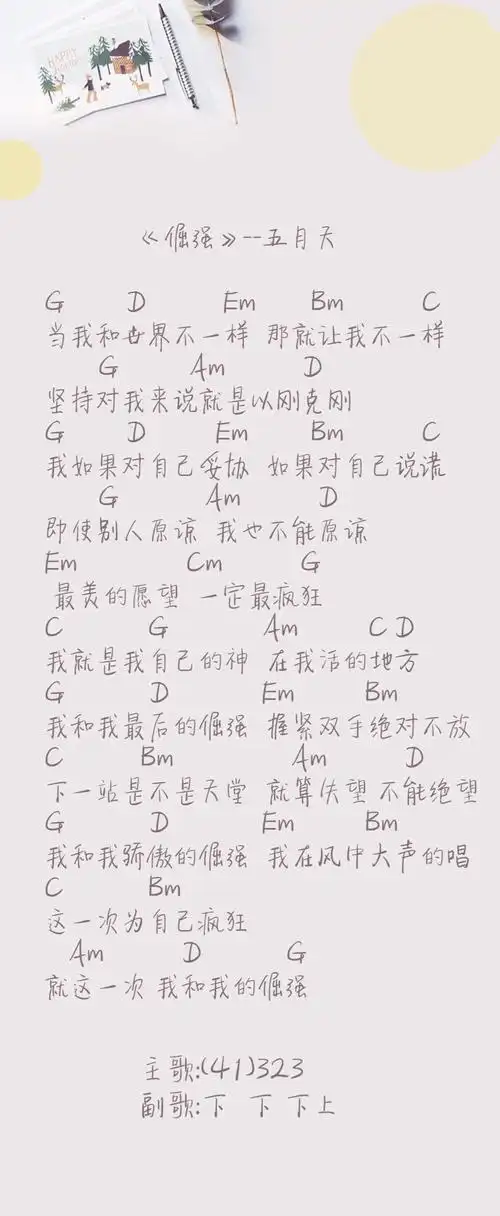 HAPPY
《倔强》--五月天
G D Em Bm C
当我和世界不一样 那就让我不一样
G Am D
坚持对我来说就是以刚克刚
G D Em Bm C
我如果对自己妥协 如果对自己说谎
G Am D
即使别人原谅 我也不能原谅
Em Cm G
最美的愿望 一定最疯狂
C G Am C D
我就是我自己的神 在我活的地方
G D Em Bm
我和我最后的倔强 握紧双手绝对不放
C Bm Am D
下一站是不是天堂 就算失望 不能绝望
G D Em Bm
我和我骄傲的倔强 我在风中大声的唱
C Bm
这一次为自己疯狂
Am D G
就这一次 我和我的倔强
主歌:(41)323
副歌:下 下 下上